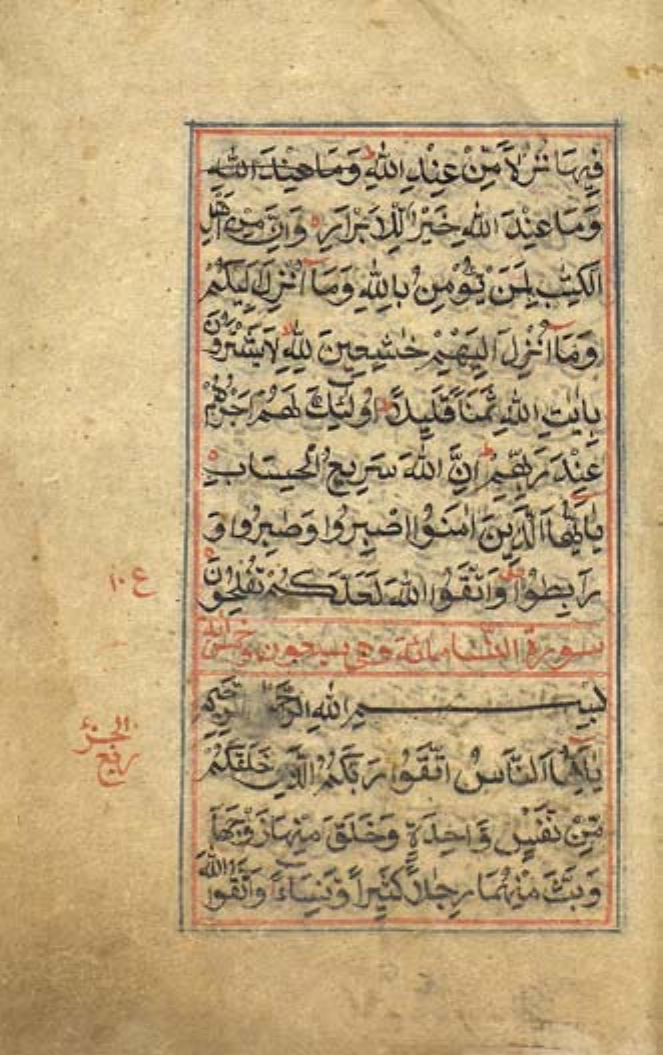 فِيهَا نُزُلًا مِّنْ عِنْدِ اللهِ ط وَمَا عِنْدَ اللهِ
وَمَا عِنْدَ اللهِ خَيْرٌ لِّلْاَبْرَارِ وَاِنَّ مِنْ اَهْلِ
الْكِتٰبِ لَمَنْ يُّؤْمِنُ بِاللهِ وَمَا اُنْزِلَ اِلَيْكُمْ
وَمَا اُنْزِلَ اِلَيْهِمْ خٰشِعِينَ لِلّٰهِ لَا يَشْتَرُونَ
بِاٰيٰتِ اللهِ ثَمَنًا قَلِيلًا ط اُولٰئِكَ لَهُمْ اَجْرُهُمْ
عِنْدَ رَبِّهِمْ ط اِنَّ اللهَ سَرِيعُ الْحِسَابِ
يٰاَيُّهَا الَّذِينَ اٰمَنُوا اصْبِرُوا وَصَابِرُوا وَ
رَابِطُوا وَاتَّقُوا اللهَ لَعَلَّكُمْ تُفْلِحُونَ
ع ١٠
سورة النسا مائة و سبعون و
بِسْمِ اللهِ الرَّحْمٰنِ الرَّحِيمِ
الجزء
ربع
يٰاَيُّهَا النَّاسُ اتَّقُوا رَبَّكُمُ الَّذِي خَلَقَكُمْ
مِّنْ نَفْسٍ وَّاحِدَةٍ وَّخَلَقَ مِنْهَا زَوْجَهَا
وَبَثَّ مِنْهُمَا رِجَالًا كَثِيرًا وَّنِسَاءً وَاتَّقُوا اللهَ